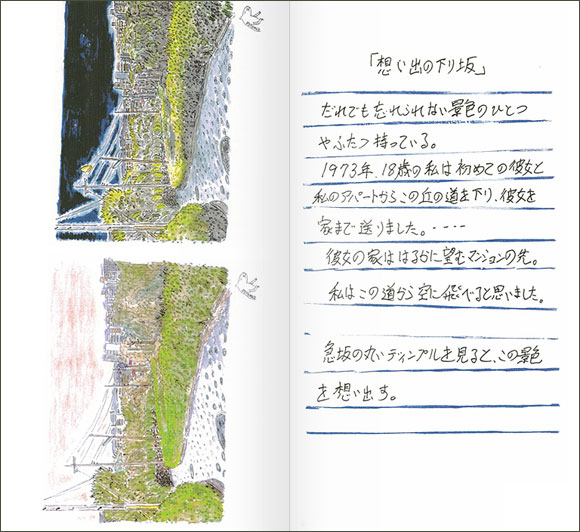 「想い出の下り坂」
だれでも忘れられない景色のひとつ
やふたつ持っている。
1973年、18歳の私は初めての彼女と
私のアパートからこの丘の道を下り、彼女を
家まで送りました。・・・・
彼女の家ははるかに望むマンションの先。
私はこの道から空に飛べると思いました。
急坂の丸いディンプルを見ると、この景色
を想い出す。